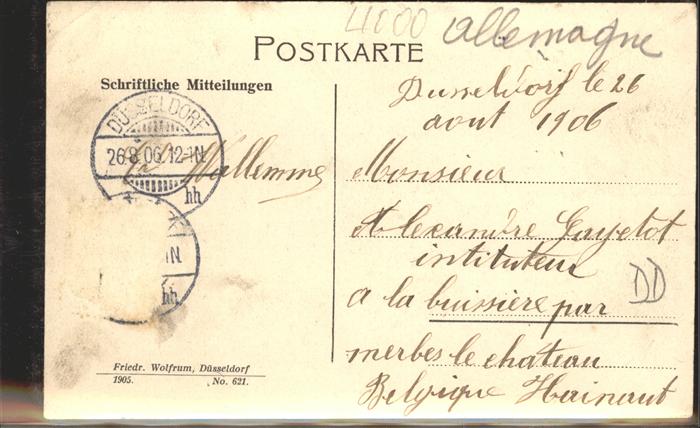 4000 Allemagne
POSTKARTE
Schriftliche Mitteilungen
Dusseldorf le 26
aout 1906
DÜSSELDORF
26.8.06.12-1N.
hh
Wallemme
Monsieur
Alexandre Gayetot
instituteur
a la buissière par
DD
merbes le chateau
Belgique Hainaut
1N
hh
Friedr. Wolfrum, Düsseldorf
1905. No. 621.